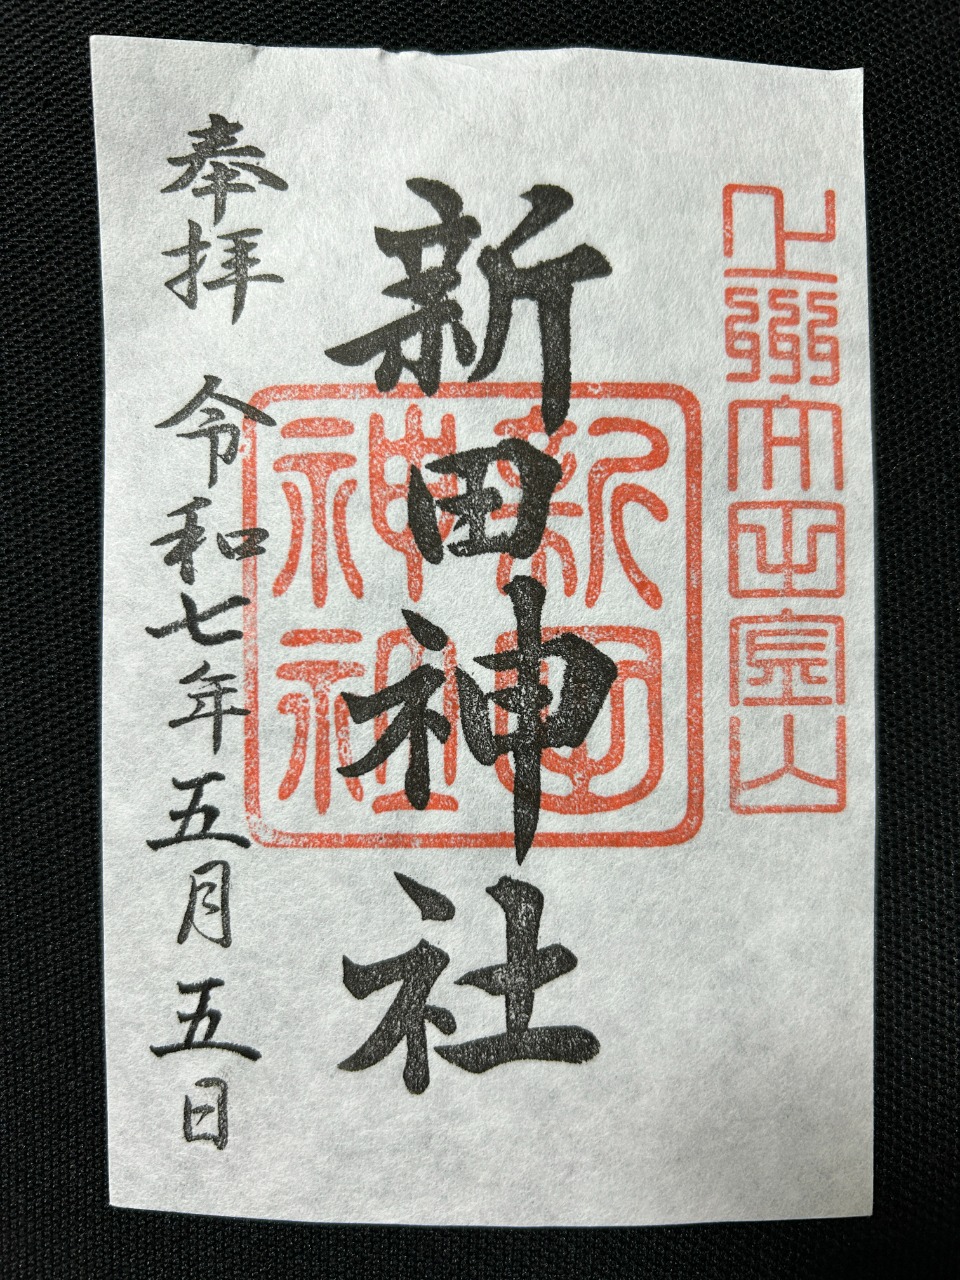 上州太田金山
新田神社
新田
神社
奉拝 令和七年五月五日